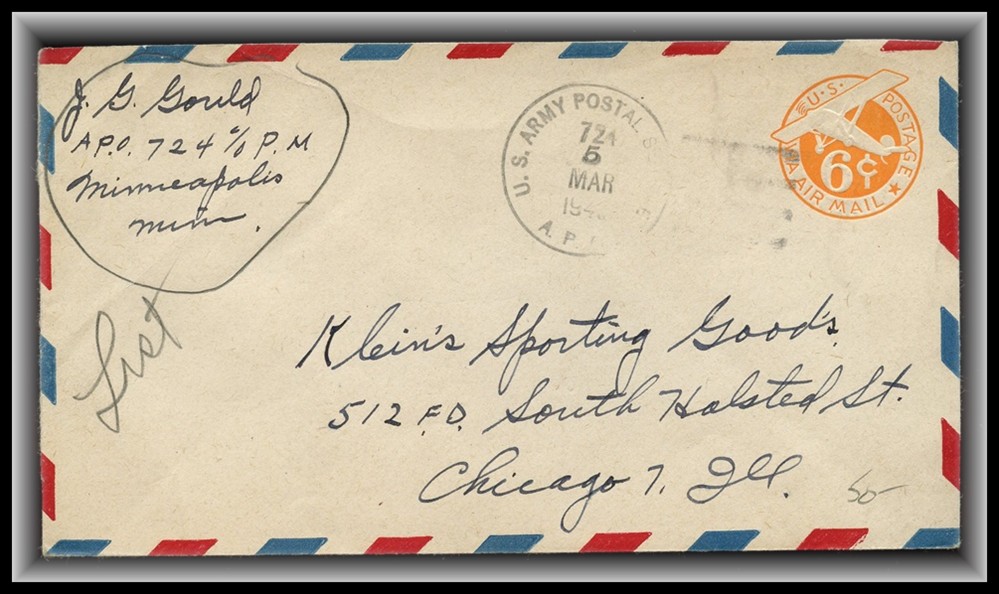 J. G. Gould
A.P.O. 724 c/o P. M
Minneapolis
Minn.
List
U. S. ARMY POSTAL
724
5
MAR
A. P.
U.S. POSTAGE
6¢
VIA AIR MAIL
Klein's Sporting Good's
512 F.D. South Halsted St.
Chicago 7, Ill.
50-